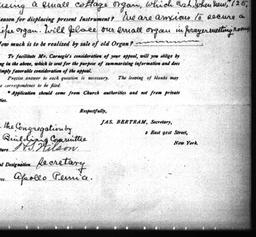 using a small cottage organ, which cost, when new, 125,
Reason for displacing present Instrument? We are anxious to secure a
pipe organ. Will place our small organ in prayer meeting room
How much is to be realized by sale of old Organ?
To facilitate Mr. Carnegie's consideration of your appeal, will you oblige by
ing in the above, which is used for the purpose of summarizing information and does
imply favorable consideration of the appeal.
Precise answer to each question is necessary. The leaving of blanks may
correspondence to be filed.
Application should come from Church authorities and not from private
ties.
Respectfully,
JAS. BERTRAM, Secretary,
2 East 91st Street,
New York.
the Congregation by
Building Committee
ture H. S. Wilson
ial Designation. Secretary
ss Apollo Penna.